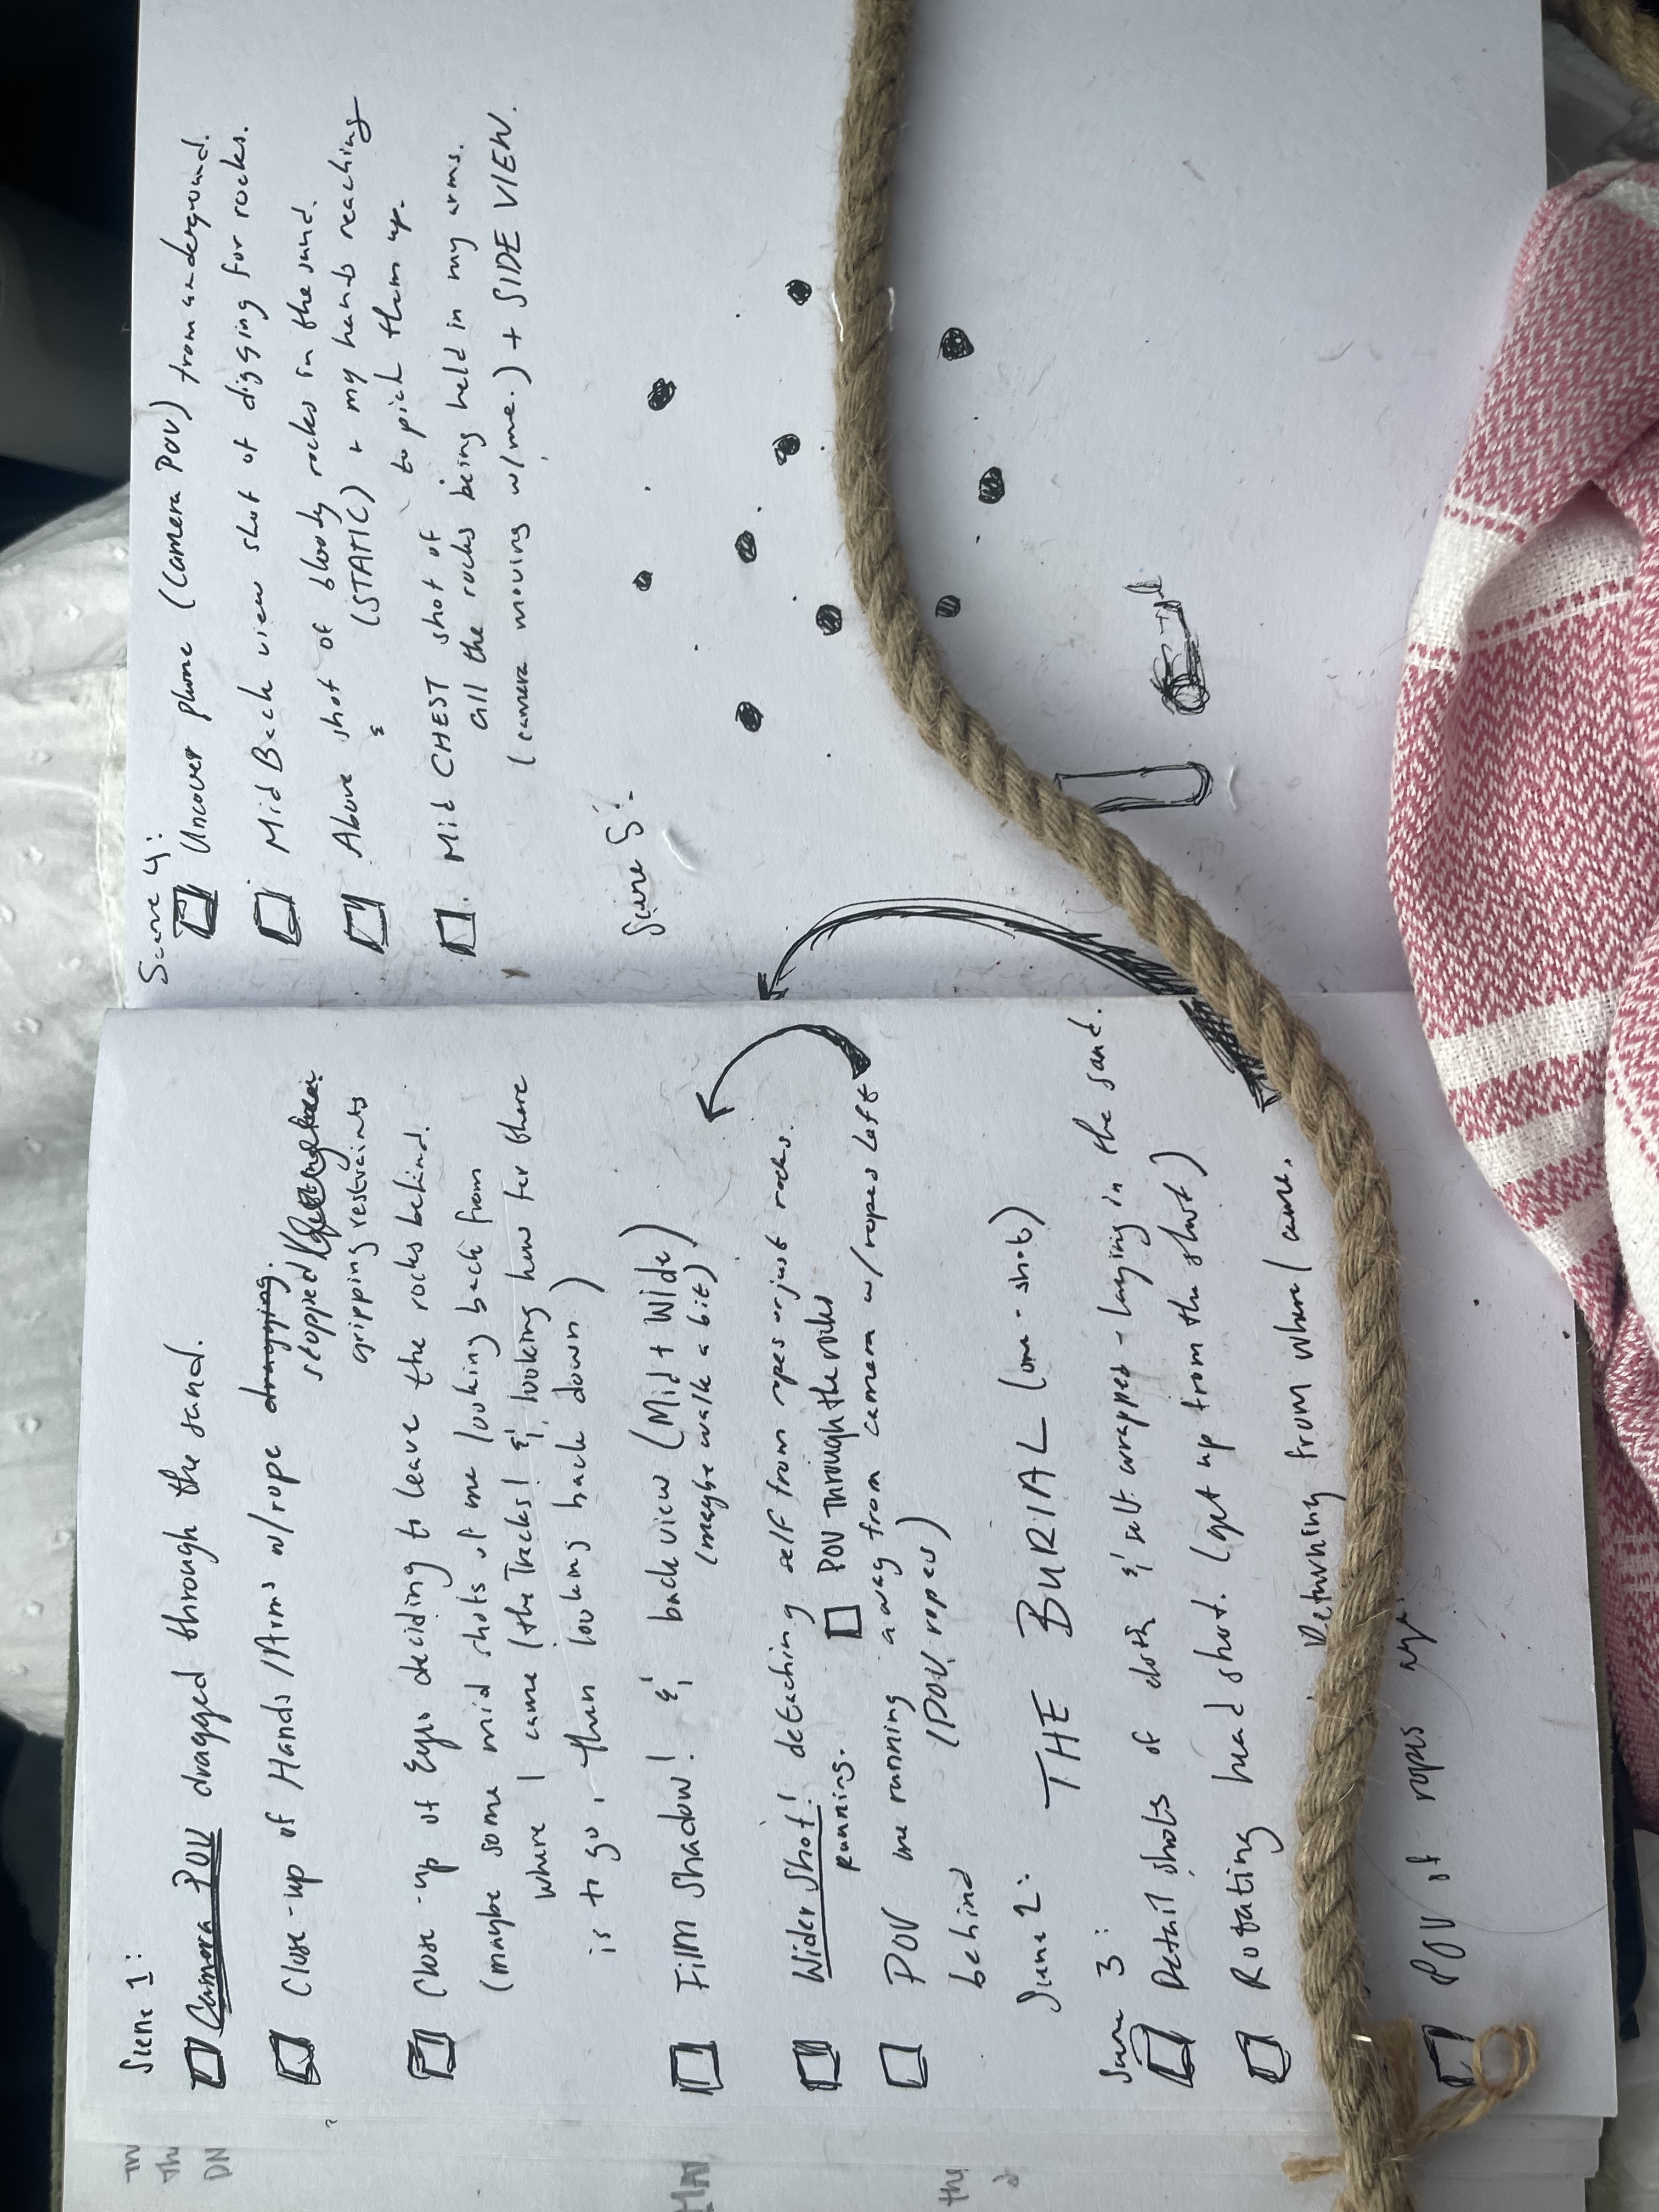 Scene 1:
Camera POV dragged through the sand.
Close-up of Hands/Arms w/rope dragging.
stopped/
gripping restraints
Close-up of Eyes deciding to leave the rocks behind.
(maybe some mid shots of me looking back from
where I came (the Tracks! & looking how far there
is to go, then looking back down)
Film Shadow! & back view (Mid + Wide)
(maybe walk a bit)
Wider Shot! detaching self from ropes or just rocks.
running.
POV through the rocks
POV me running away from camera w/ropes left
behind (POV ropes)
Scene 2: THE BURIAL (one-shot)
Scene 3:
Detail shots of cloth & self wrapped - laying in the sand.
Rotating head shot. (get up from the shot)
Returning from where I came.
POV of ropes
Scene 4:
Uncover phone (Camera POV) from underground.
Mid Back view shot of digging for rocks.
Above shot of bloody rocks in the sand.
(STATIC) + my hands reaching
to pick them up.
Mid CHEST shot of
all the rocks being held in my arms.
(camera moving w/me.) + SIDE VIEW.
Scene 5:
TH
Th
DN
the